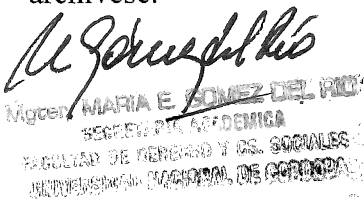 archívese.
M Gómez del Río
Mgter. MARIA E. GOMEZ DEL RIO
SECRETARIA ACADEMICA
FACULTAD DE DERECHO Y CS. SOCIALES
UNIVERSIDAD NACIONAL DE CORDOBA